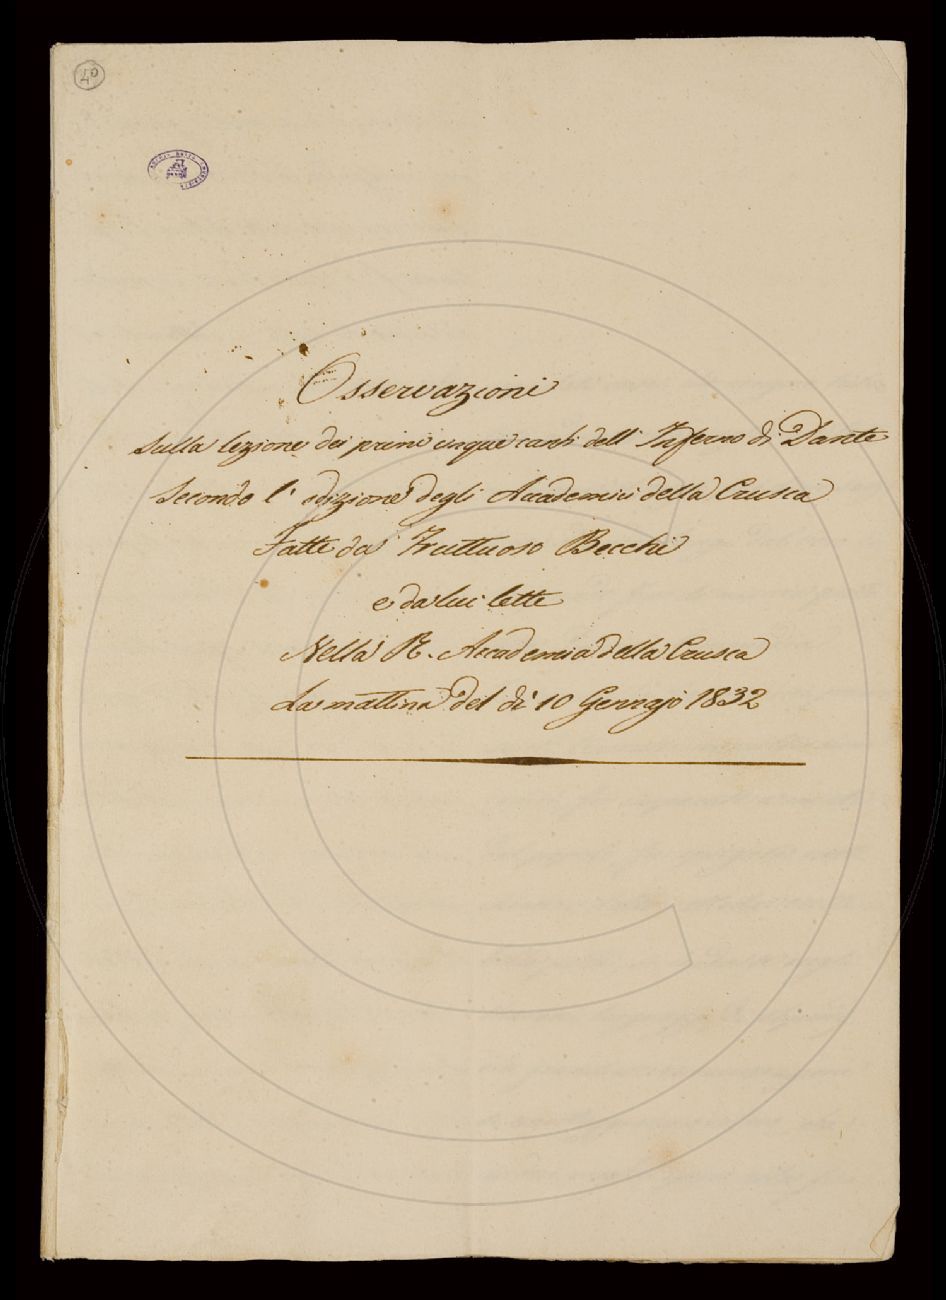 40
Osservazioni
Sulla lezione dei primi cinque canti dell' Inferno di Dante
Secondo l' edizione degli Accademici della Crusca
Fatte da Fruttuoso Becchi
e da lui lette
Nella R. Accademia della Crusca
La mattina del dì 10 Gennajo 1832